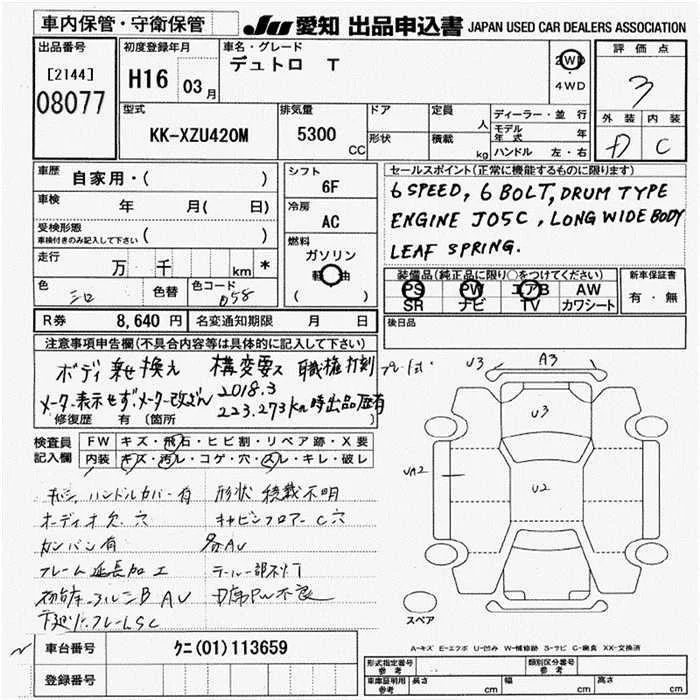 車内保管・守衛保管
JU 愛知 出品申込書 JAPAN USED CAR DEALERS ASSOCIATION
出品番号
[2144]
08077
初度登録年月
H16 03月
車名・グレード
デュトロ T
2WD
4WD
評価点
3
外装 内装
D C
型式
KK-XZU420M
排気量
5300 CC
ドア
形状
定員 人
積載 kg
ディーラー・並行
モデル年式 年
ハンドル 左・右
車歴 自家用・( )
車検 年 月( 日)
受検形態
車検付きのみ記入して下さい ( )
走行 万 千 km *
色
色替
色コード
058
シフト
6F
冷房
AC
燃料
ガソリン
軽油
( )
セールスポイント(正常に機能するものに限ります)
6 SPEED, 6 BOLT, DRUM TYPE
ENGINE J05C, LONG WIDE BODY
LEAF SPRING.
装備品(純正品に限り○をつけてください)
PS PW エアB AW
SR ナビ TV カワシート
新車保証書
有・無
R券 8,640 円 名変通知期限 月 日
後日品
注意事項申告欄(不具合内容等は具体的に記入して下さい)
ボディ乗せ換え 構変要ス 職権打刻
メーター表示せず、メーター改ざん 2018.3
223.273km時出品歴有
修復歴 有 (箇所
検査員記入欄
FW キズ・飛石・ヒビ割・リペア跡・X要
内装 キズ・汚レ・コゲ・穴・スレ・キレ・破レ
ハンドルカバー有 形状 積載不明
オーディオ欠.穴 キャビンフロアーC穴
カンバン有 各AU
フレーム延長加工
D席PW不良
下廻り.フレームSC
U3
A3
U3
U2
UA2
スペア
A-キズ E-エクボ U-凹み W-補修跡 S-サビ C-腐食 XX-交換済
車台番号 クニ(01)113659
登録番号
形式指定番号 参考
類別区分番号 参考
車庫証明用 参考 長さ cm 幅 cm 高さ cm